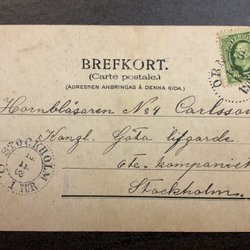 BREFKORT.
(Carte postale.)
(ADRESSEN ANBRINGAS Å DENNA SIDA)
Hornblåsaren No 9 Carlsson
Kongl. Göta lifgarde
6te kompaniet
Stockholm.
STOCKHOLM